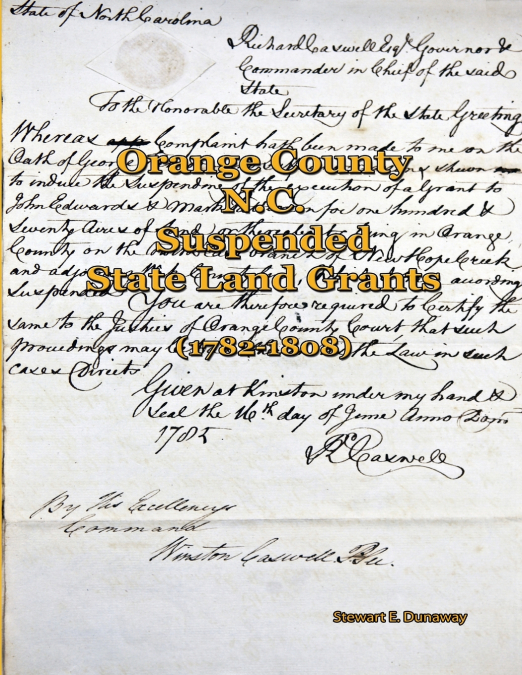 State of North Carolina
Richard Caswell Esqr. Governor &
Commander in Chief of the said
State
To the Honorable the Secretary of the State Greeting
Whereas Complaint hath been made to me on the
Oath of George shewn
to induce the Suspending the execution of a Grant to
John Edwards & for one hundred &
Seventy Acres of Land lying in Orange
County on the New Hope Creek
and according
Suspended. You are therefore required to Certify the
same to the Justices of Orange County Court that such
proceedings may the Law in such
cases Directs
Given at Kinston under my hand &
Seal the 16th day of June Anno Dom
1785
Rd. Caswell
By His Excellencys
Command
Winston Caswell
Orange County
N.C.
Suspended
State Land Grants
(1782-1808)
Stewart E. Dunaway